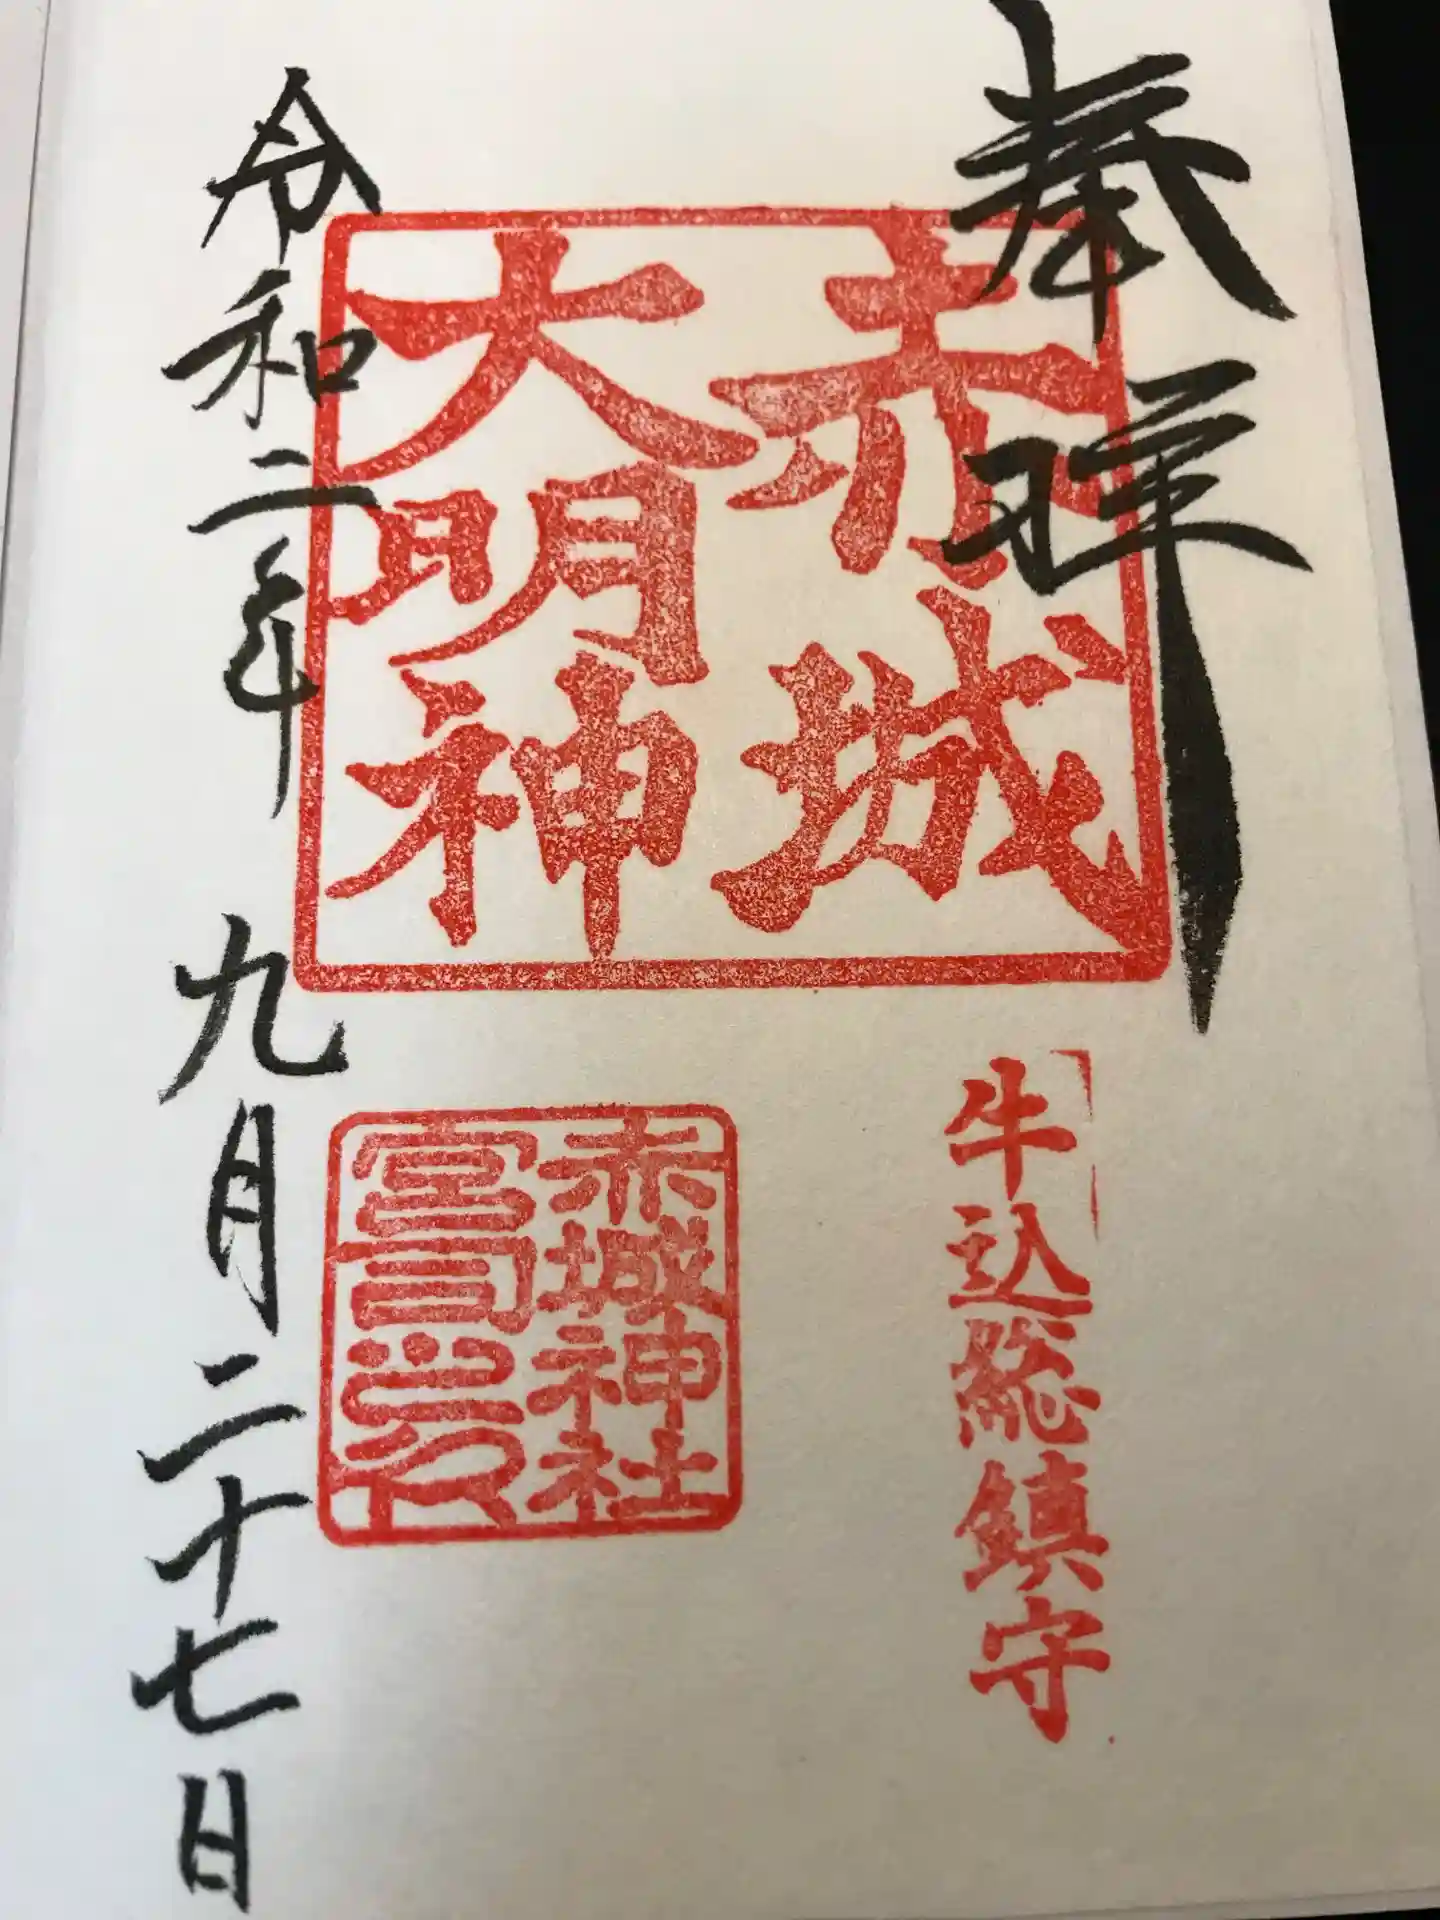 奉拝
牛込総鎮守
赤城
大明神
赤城神社
宮司之印
令和二年 九月二十七日